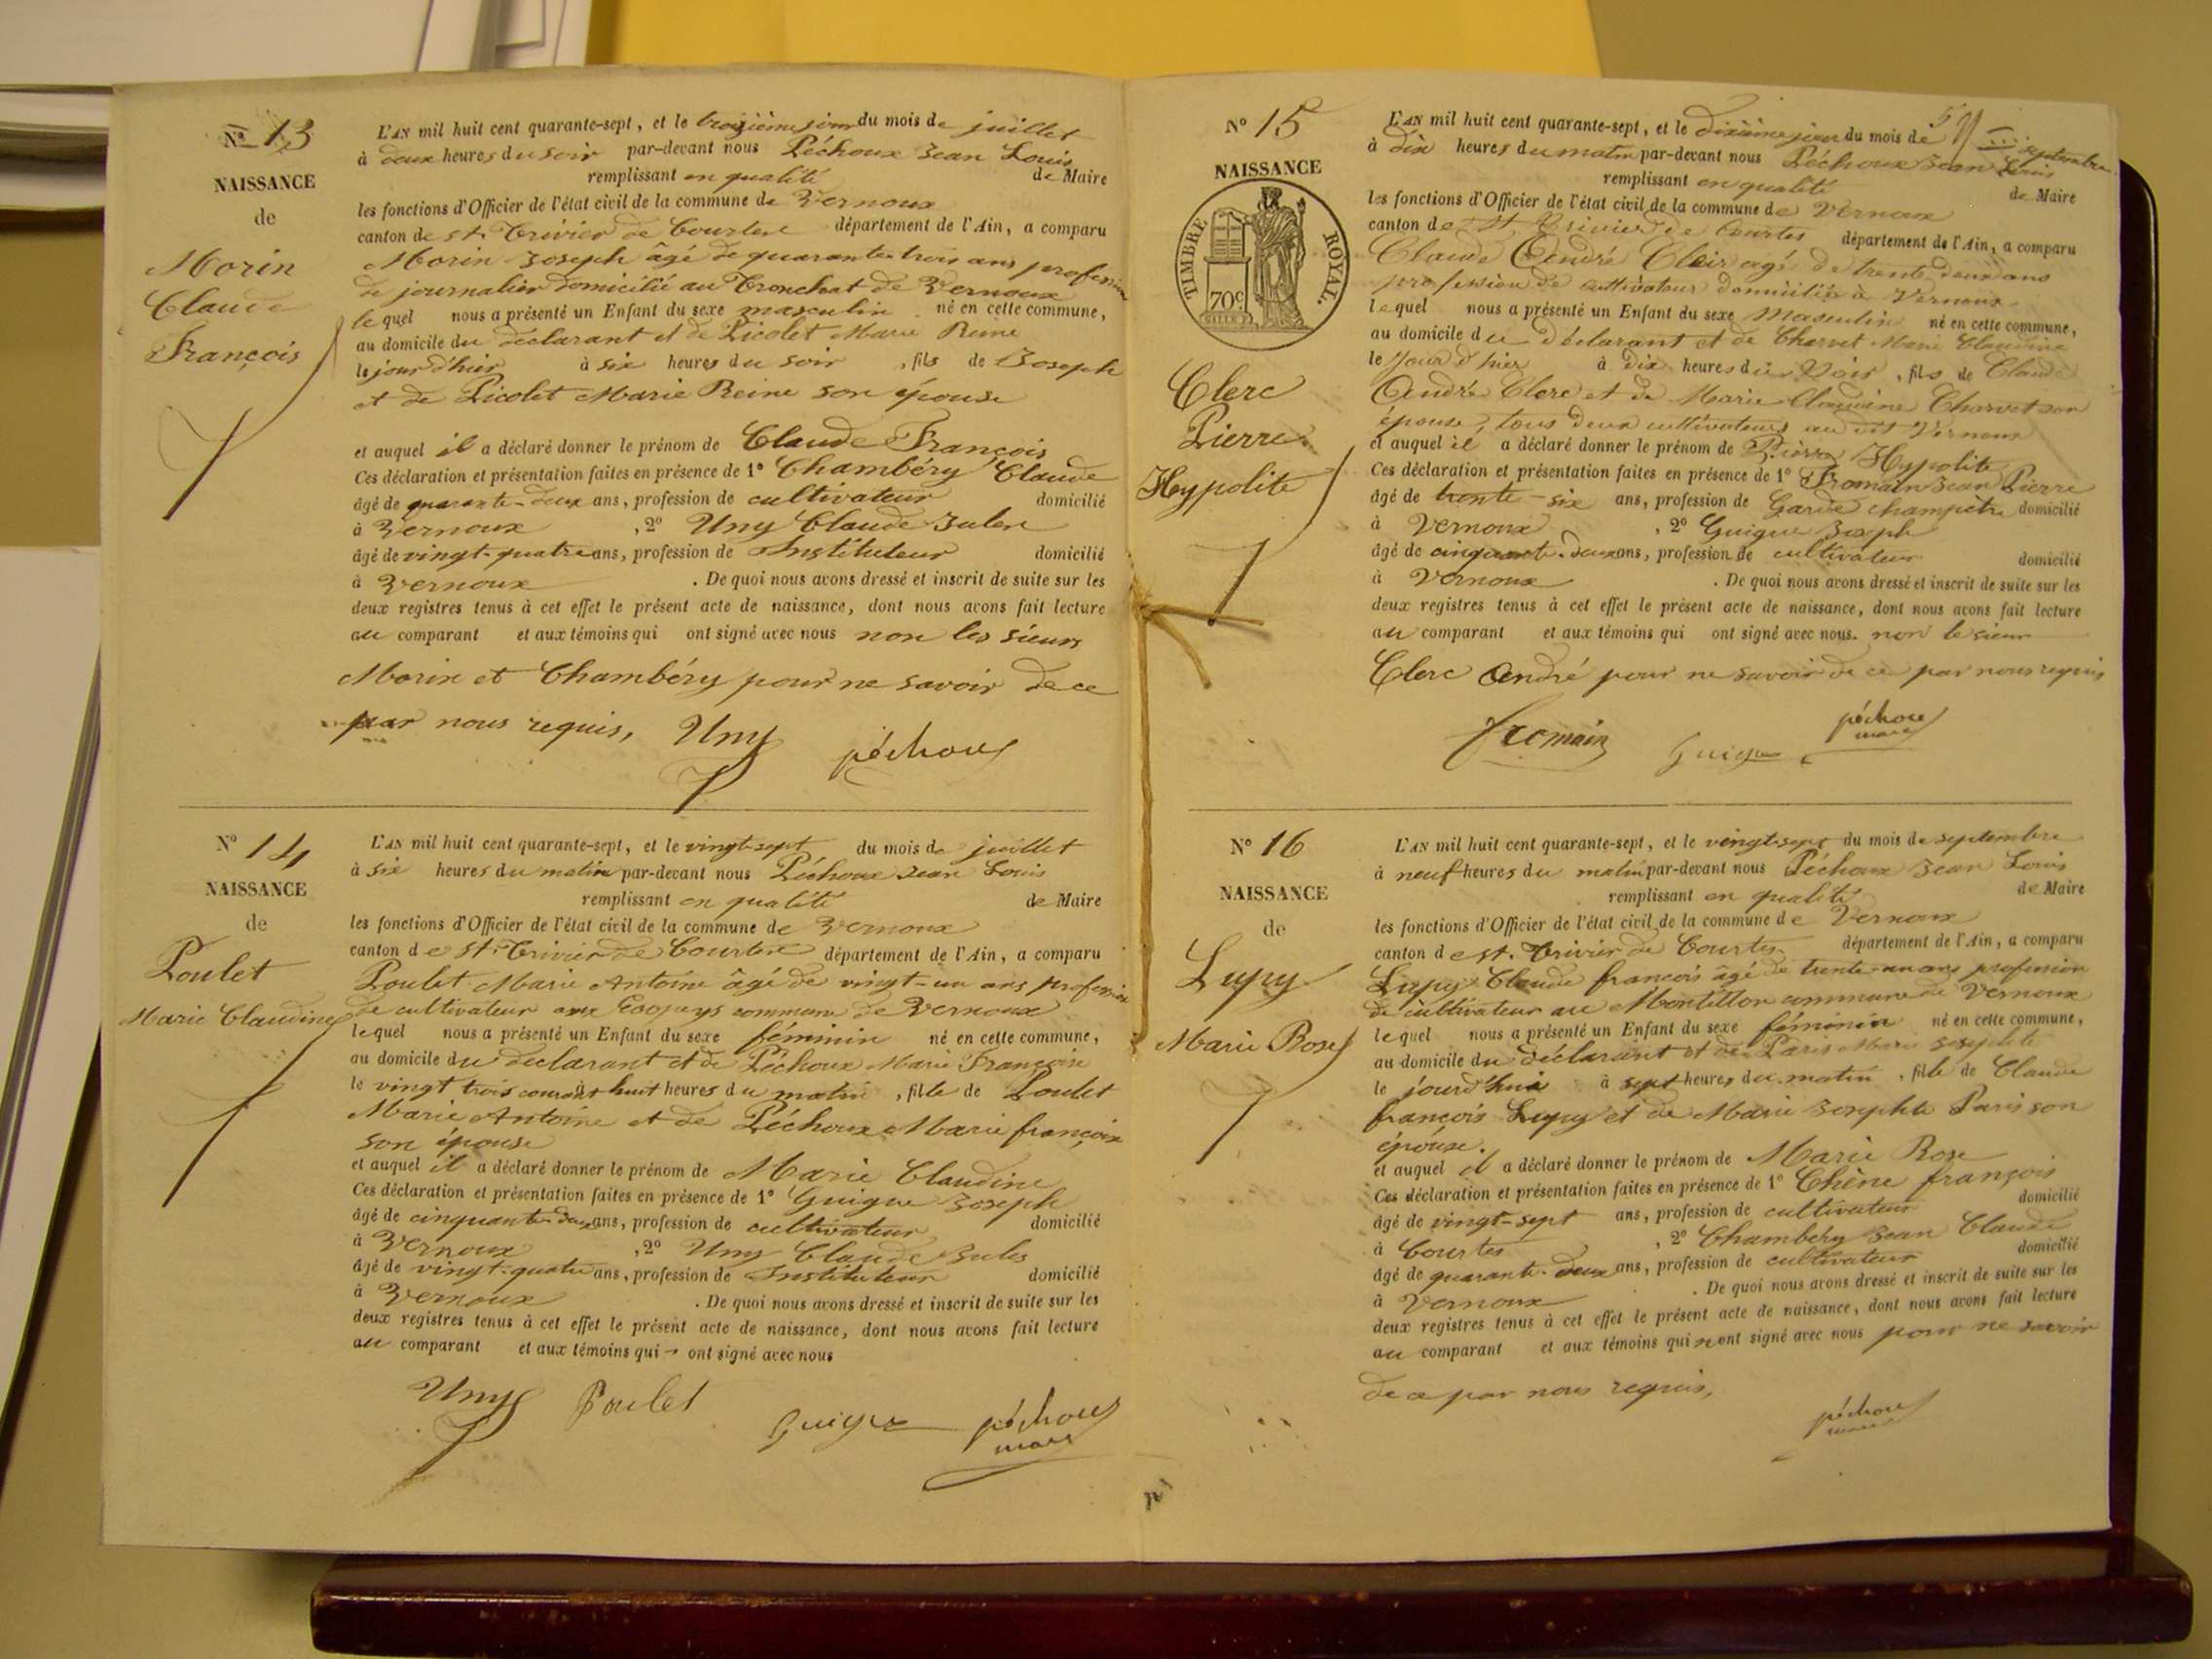 N° 13
NAISSANCE
de
Morin
Claude
François
L'AN mil huit cent quarante-sept, et le troisième jour du mois de juillet
à deux heures du soir par-devant nous Péchoux Jean Louis
remplissant en qualité de Maire
les fonctions d'Officier de l'état civil de la commune de Vernoux
canton de St. Trivier de Courtes département de l'Ain, a comparu
Morin Joseph âgé de quarante trois ans profession
de journalier domicilié au Tronchat de Vernoux
lequel nous a présenté un Enfant du sexe masculin né en cette commune,
au domicile du déclarant et de Picolet Marie Reine
le jour d'hier à six heures du soir, fils de Joseph
et de Picolet Marie Reine son épouse
et auquel il a déclaré donner le prénom de Claude François
Ces déclaration et présentation faites en présence de 1° Chambéry Claude
âgé de quarante-deux ans, profession de cultivateur domicilié
à Vernoux, 2° Uny Claude Jules
âgé de vingt-quatre ans, profession de Instituteur domicilié
à Vernoux. De quoi nous avons dressé et inscrit de suite sur les
deux registres tenus à cet effet le présent acte de naissance, dont nous avons fait lecture
au comparant et aux témoins qui ont signé avec nous non les sieurs
Morin et Chambéry pour ne savoir de ce
par nous requis,
Uny péchoux
N° 14
NAISSANCE
de
Poulet
Marie Claudine
L'AN mil huit cent quarante-sept, et le vingt-sept du mois de juillet
à six heures du matin par-devant nous Péchoux Jean Louis
remplissant en qualité de Maire
les fonctions d'Officier de l'état civil de la commune de Vernoux
canton de St. Trivier de Courtes département de l'Ain, a comparu
Poulet Marie Antoine âgé de vingt-un ans profession
de cultivateur aux commune de Vernoux
lequel nous a présenté un Enfant du sexe féminin né en cette commune,
au domicile du déclarant et de Péchoux Marie Françoise
le vingt trois courant à huit heures du matin, fille de Poulet
Marie Antoine et de Péchoux Marie françoise
son épouse
et auquel il a déclaré donner le prénom de Marie Claudine
Ces déclaration et présentation faites en présence de 1° Guigue Joseph
âgé de cinquante-deux ans, profession de cultivateur domicilié
à Vernoux, 2° Uny Claude Jules
âgé de vingt-quatre ans, profession de Instituteur domicilié
à Vernoux. De quoi nous avons dressé et inscrit de suite sur les
deux registres tenus à cet effet le présent acte de naissance, dont nous avons fait lecture
au comparant et aux témoins qui ont signé avec nous
Uny Poulet Guigue péchoux
maire
N° 15
NAISSANCE
TIMBRE ROYAL.
70c
Clerc
Pierre
Hypolite
L'AN mil huit cent quarante-sept, et le dixième jour du mois de septembre
à dix heures du matin par-devant nous Péchoux Jean Louis
remplissant en qualité de Maire
les fonctions d'Officier de l'état civil de la commune de Vernoux
canton de St Trivier de Courtes département de l'Ain, a comparu
Claude André Clerc agé de trente deux ans
profession de cultivateur domicilié à Vernoux
lequel nous a présenté un Enfant du sexe Masculin né en cette commune,
au domicile du déclarant et de Charvet Marie Claudine
le jour d'hier à dix heures du soir, fils de Claude
André Clerc et de Marie Claudine Charvet son
épouse, tous deux cultivateurs au dit Vernoux
et auquel il a déclaré donner le prénom de Pierre Hypolite
Ces déclaration et présentation faites en présence de 1° Fromain Jean Pierre
âgé de trente-six ans, profession de Garde champêtre domicilié
à Vernoux, 2° Guigue Joseph
âgé de cinquante-deux ans, profession de cultivateur domicilié
à Vernoux. De quoi nous avons dressé et inscrit de suite sur les
deux registres tenus à cet effet le présent acte de naissance, dont nous avons fait lecture
au comparant et aux témoins qui ont signé avec nous. non le sieur
Clerc André pour ne savoir de ce par nous requis
fromain Guigue péchoux
maire
N° 16
NAISSANCE
de
Lupy
Marie Rose
L'AN mil huit cent quarante-sept, et le vingt-sept du mois de septembre
à neuf heures du matin par-devant nous Péchoux Jean Louis
remplissant en qualité de Maire
les fonctions d'Officier de l'état civil de la commune de Vernoux
canton de St. Trivier de Courtes département de l'Ain, a comparu
Lupy Claude françois âgé de trente-un ans profession
de cultivateur au Montillon commune de Vernoux
lequel nous a présenté un Enfant du sexe féminin né en cette commune,
au domicile du déclarant et de Paris Marie Josephte
le jourd'hui à sept heures du matin, fille de Claude
françois Lupy et de Marie Josephte Paris son
épouse.
et auquel il a déclaré donner le prénom de Marie Rose
Ces déclaration et présentation faites en présence de 1° Chêne françois
âgé de vingt-sept ans, profession de cultivateur domicilié
à Courtes, 2° Chambéry Jean Claude
âgé de quarante-deux ans, profession de cultivateur domicilié
à Vernoux. De quoi nous avons dressé et inscrit de suite sur les
deux registres tenus à cet effet le présent acte de naissance, dont nous avons fait lecture
au comparant et aux témoins qui n'ont signé avec nous pour ne savoir
de ce par nous requis,
péchoux
maire